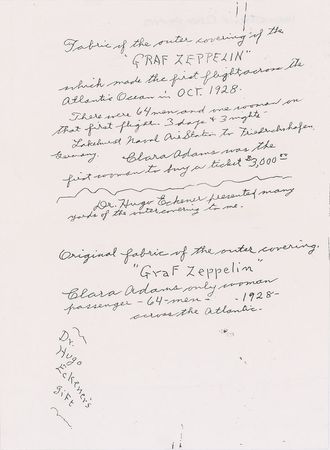 Fabric of the outer covering of the
"GRAF ZEPPELIN"
which made the first flight across the
Atlantic Ocean in OCT. 1928.
There were 64 men and one woman on
that first flight. 3 days & 3 nights-
Lakehurst Naval Air Station to Friedrichshafen,
Germany. Clara Adams was the
first woman to buy a ticket $3,000.00
Dr. Hugo Eckener presented many
yards of the outer covering to me.
Original fabric of the outer covering.
"Graf Zeppelin"
Clara Adams only woman
passenger - 64 - men - -1928-
across the Atlantic.
Dr.
Hugo
Eckener's
gift